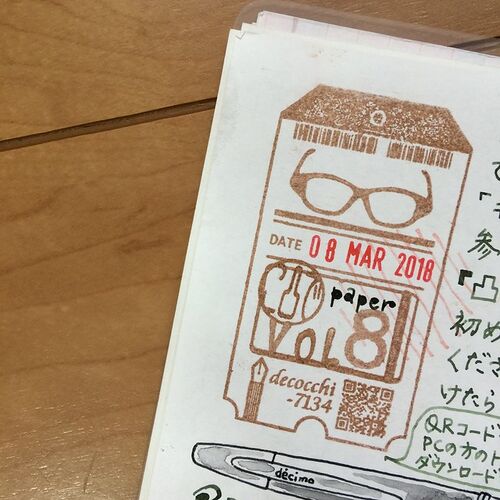 DATE 08 MAR 2018
paper
VOL 8
decocchi
-7134
décimo
参
初め
くださ
けたら
QRコード
PCの方の
ダウンロード